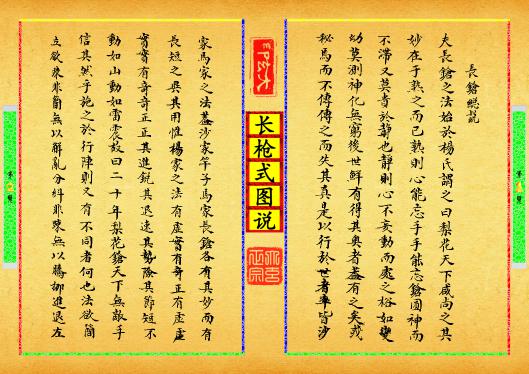 長鎗總説
夫長鎗之法始於楊氏謂之曰梨花天下咸尚之其
妙在于熟之而已熟則心能忘手手能忘鎗圓神而
不滯又莫貴於靜也靜則心不妄動而處之裕如變
幻莫測神化無窮後世鮮有得其奥者蓋有之矣或
秘焉而不傳傳之而失其真是以行於世者率皆沙
长枪式图说
家馬家之法蓋沙家竿子馬家長鎗各有其妙而有
長短之異其用惟楊家之法有虛實有奇正有虛虛
實實有奇奇正正其進銳其退速其勢險其節短不
動如山動如雷震故曰二十年梨花鎗天下無敵手
信其然乎施之於行陣則又有不同者何也法欲簡
立欲疎非簡無以解亂分糾非疎無以騰挪進退左